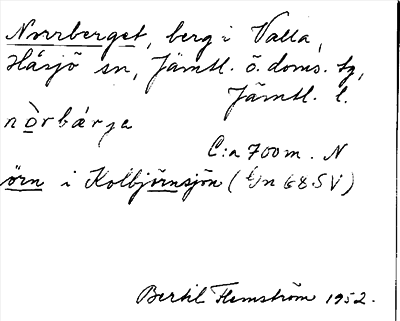 Norrberget, berg i Valla,
Håsjö sn, Jämtl. ö. doms. tg,
Jämtl. l.
nòrbárja
C:a 700 m. N
örn i Kolbjörnsjön (tjn G8 SV)
Bertil Flemström 1952.